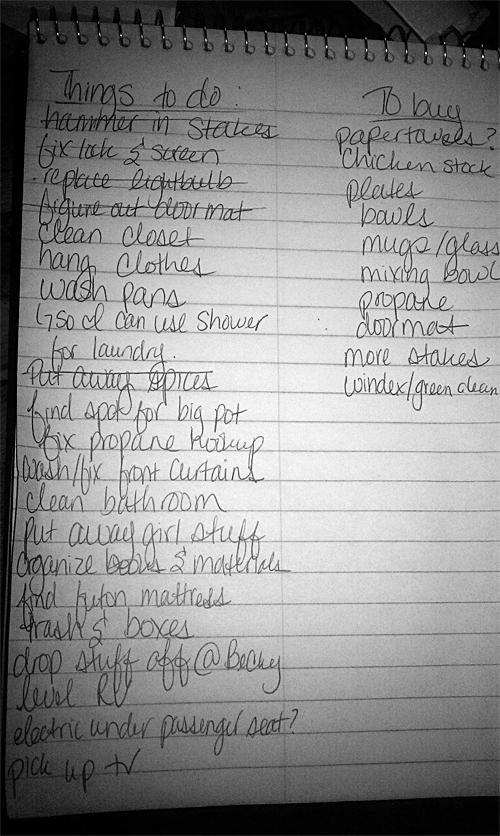 Things to do:
hammer in stakes
fix lock & screen
replace lightbulb
figure out doormat
clean closet
hang clothes
wash pans
↳so I can use shower
for laundry.
Put away spices
find spot for big pot
fix propane hookup
wash/fix front curtains
clean bathroom
put away girl stuff
organize books & materials
find futon mattress
trash & boxes
drop stuff off @ Becky
level RV
electric under passenger seat?
pick up tv
To buy
papertowels?
Chicken stock
plates
bowls
mugs/glass
mixing bowl
propane
doormat
more stakes
windex/green clean